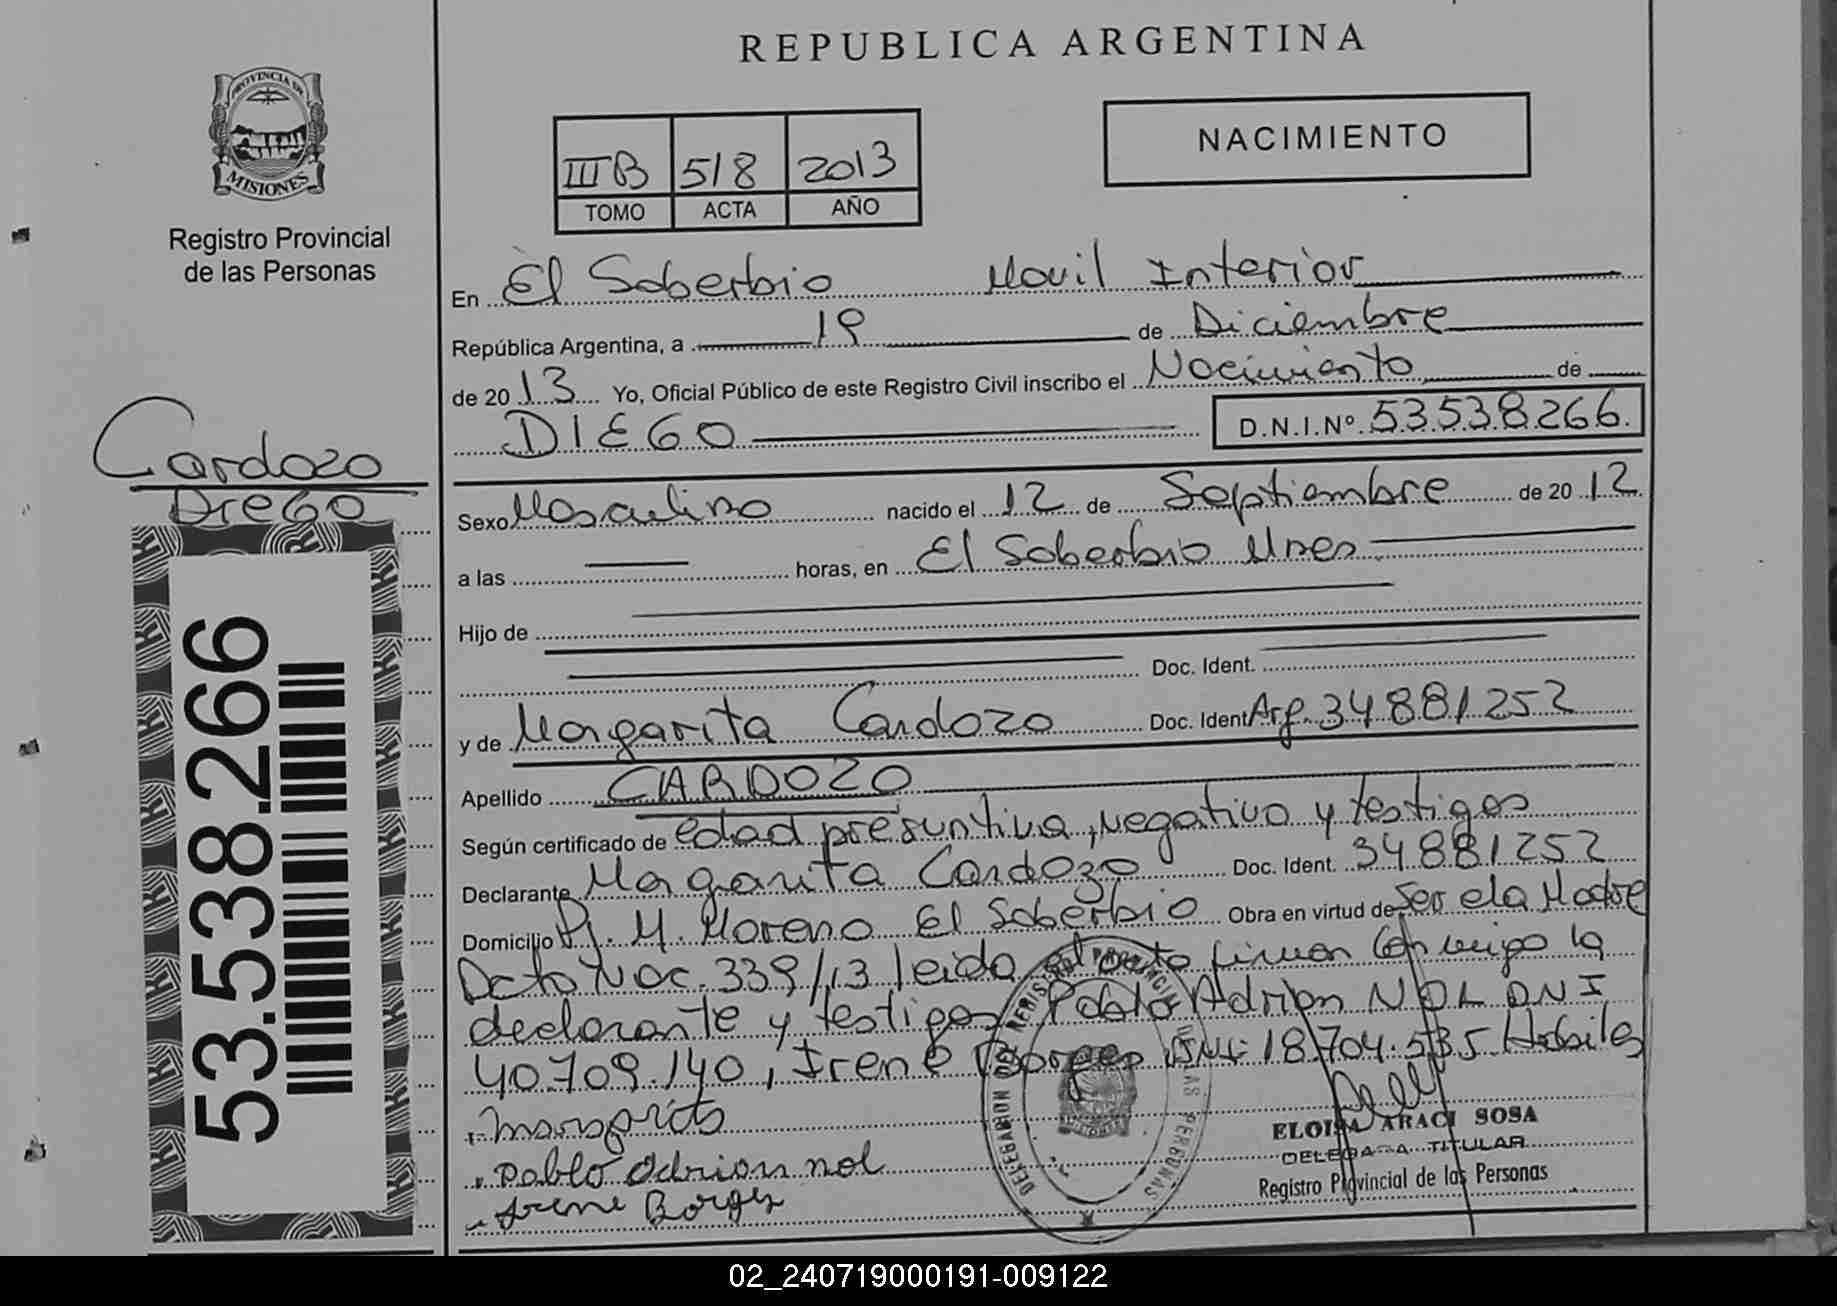 REPUBLICA ARGENTINA
PROVINCIA DE
MISIONES
Registro Provincial
de las Personas
IIIB 518 2013
TOMO ACTA AÑO
NACIMIENTO
En El Soberbio Movil Interior
República Argentina, a 19 de Diciembre
de 2013 Yo, Oficial Público de este Registro Civil inscribo el Nacimiento de
DIEGO D.N.I.Nº 53538266
Cardozo
DIEGO
53.538.266
Sexo Masculino nacido el 12 de Septiembre de 2012
a las horas, en El Soberbio Mnes
Hijo de
Doc. Ident.
y de Margarita Cardozo Doc. Ident Arg. 34881252
Apellido CARDOZO
Según certificado de edad presuntiva, negativo y testigos
Declarante Margarita Cardozo Doc. Ident. 34881252
Domicilio M. Moreno El Soberbio Obra en virtud de Ser ela Madre
339/13 leido el acto firman Conmigo la
declarante y testigos Pablo Adrian NOL DNI
40.709.140, Irene Borges DNI 18.704.535 Habiles
Margarita
Pablo Adrian nol
Irene Borges
ELOISA ARACI SOSA
DELEGADA TITULAR
Registro Provincial de las Personas
02_240719000191-009122